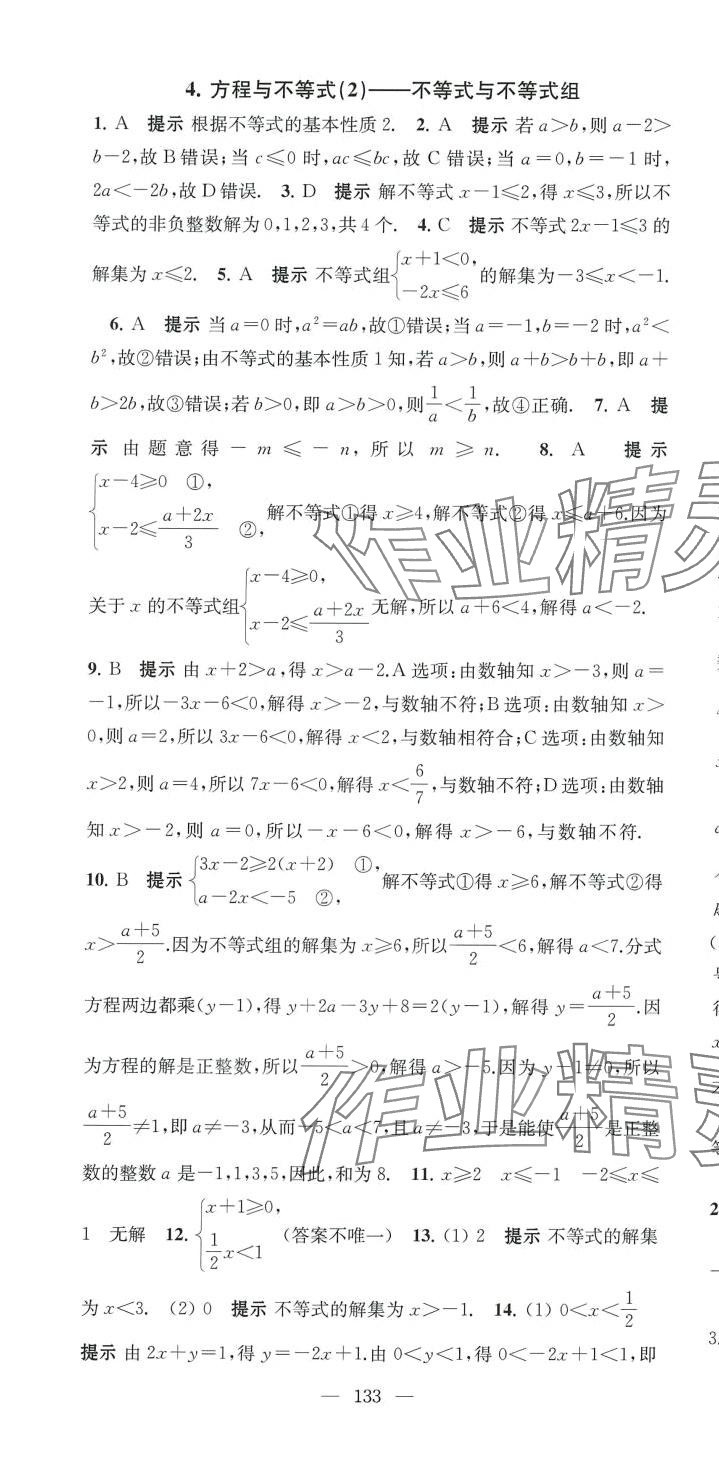 4. 方程与不等式(2)——不等式与不等式组
1. A 提示 根据不等式的基本性质2. 2. A 提示 若a>b,则a-2>
b-2,故B错误;当c≤0时,ac≤bc,故C错误;当a=0,b=-1时,
2a<-2b,故D错误. 3. D 提示 解不等式x-1≤2,得x≤3,所以不
等式的非负整数解为0,1,2,3,共4个. 4. C 提示 不等式2x-1≤3的
解集为x≤2. 5. A 提示 不等式组{x+1<0, -2x≤6 的解集为-3≤x<-1.
6. A 提示 当a=0时,a²=ab,故①错误;当a=-1,b=-2时,a²<
b²,故②错误;由不等式的基本性质1知,若a>b,则a+b>b+b,即a+
b>2b,故③错误;若b>0,即a>b>0,则1/a<1/b,故④正确. 7. A 提
示 由题意得-m≤-n,所以m≥n. 8. A 提示
{x-4≥0 ①, x-2≤(a+2x)/3 ②, 解不等式①得x≥4,解不等式②得x≤a+6.因为
关于x的不等式组{x-4≥0, x-2≤(a+2x)/3 无解,所以a+6<4,解得a<-2.
9. B 提示 由x+2>a,得x>a-2.A选项:由数轴知x>-3,则a=
-1,所以-3x-6<0,解得x>-2,与数轴不符;B选项:由数轴知x>
0,则a=2,所以3x-6<0,解得x<2,与数轴相符合;C选项:由数轴知
x>2,则a=4,所以7x-6<0,解得x<6/7,与数轴不符;D选项:由数轴
知x>-2,则a=0,所以-x-6<0,解得x>-6,与数轴不符.
10. B 提示 {3x-2≥2(x+2) ①, a-2x<-5 ②, 解不等式①得x≥6,解不等式②得
x>(a+5)/2.因为不等式组的解集为x≥6,所以(a+5)/2<6,解得a<7.分式
方程两边都乘(y-1),得y+2a-3y+8=2(y-1),解得y=(a+5)/2.因
为方程的解是正整数,所以(a+5)/2>0,解得a>-5.因为y-1≠0,所以
(a+5)/2≠1,即a≠-3,从而-5<a<7,且a≠-3,于是能使(a+5)/2是正整
数的整数a是-1,1,3,5,因此,和为8. 11. x≥2 x≤-1 -2≤x≤
1 无解 12. {x+1≥0, 1/2x<1 (答案不唯一) 13. (1) 2 提示 不等式的解集
为x<3. (2) 0 提示 不等式的解集为x>-1. 14. (1) 0<x<1/2
提示 由2x+y=1,得y=-2x+1.由0<y<1,得0<-2x+1<1,即
— 133 —
作业精灵
作业精灵